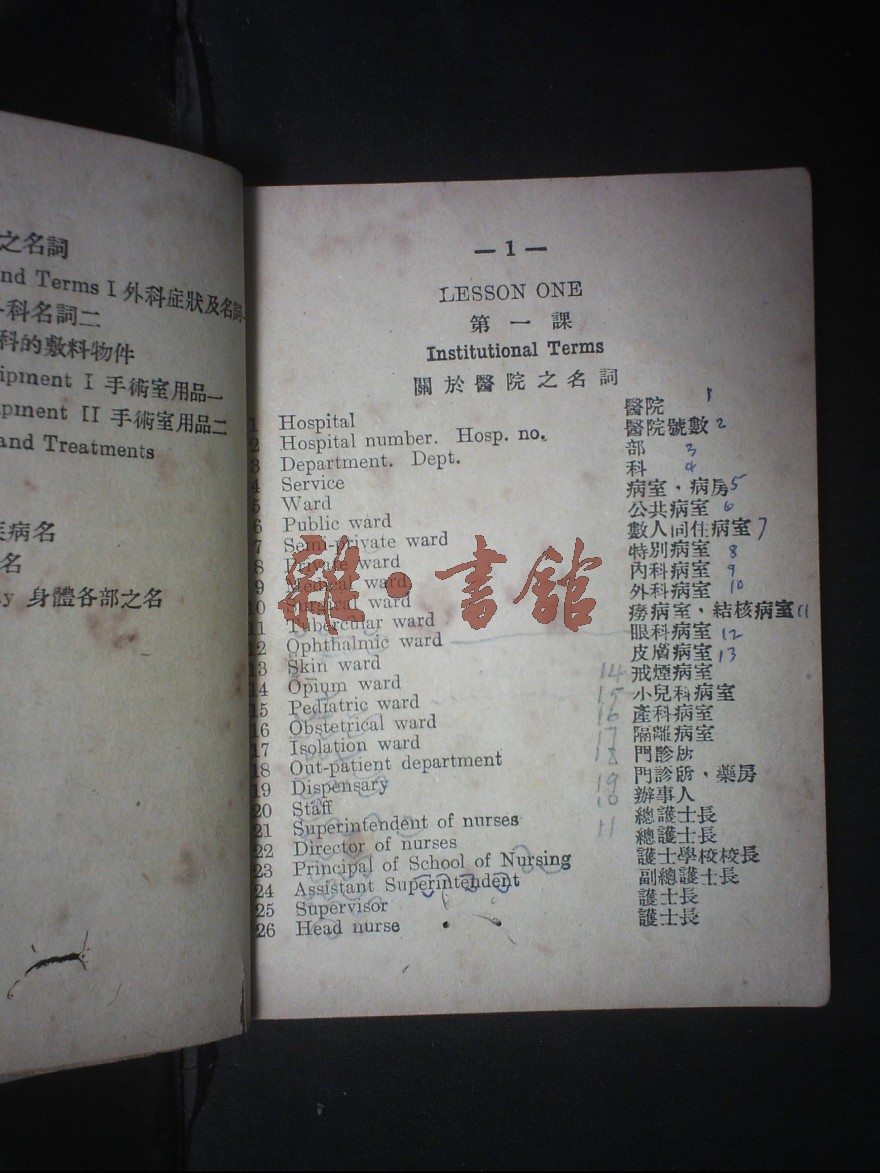 之名詞
nd Terms I 外科症狀及名詞一
科名詞二
科的敷料物件
ipment I 手術室用品一
ipment II 手術室用品二
and Treatments
疾病名
名
y 身體各部之名
— 1 —
LESSON ONE
第一課
Institutional Terms
關於醫院之名詞
1 Hospital 醫院 1
2 Hospital number. Hosp. no. 醫院號數 2
3 Department. Dept. 部 3
4 Service 科 4
5 Ward 病室・病房 5
6 Public ward 公共病室 6
7 Semi-private ward 數人同住病室 7
8 Private ward 特別病室 8
9 Medical ward 內科病室 9
10 Surgical ward 外科病室 10
11 Tubercular ward 癆病室・結核病室 11
12 Ophthalmic ward 眼科病室 12
13 Skin ward 皮膚病室 13
14 Opium ward 14 戒煙病室
15 Pediatric ward 15 小兒科病室
16 Obstetrical ward 16 產科病室
17 Isolation ward 17 隔離病室
18 Out-patient department 18 門診所
19 Dispensary 19 門診所・藥房
20 Staff 10 辦事人
21 Superintendent of nurses 11 總護士長
22 Director of nurses 總護士長
23 Principal of School of Nursing 護士學校校長
24 Assistant Superintendent 副總護士長
25 Supervisor 護士長
26 Head nurse 護士長
雜・書館